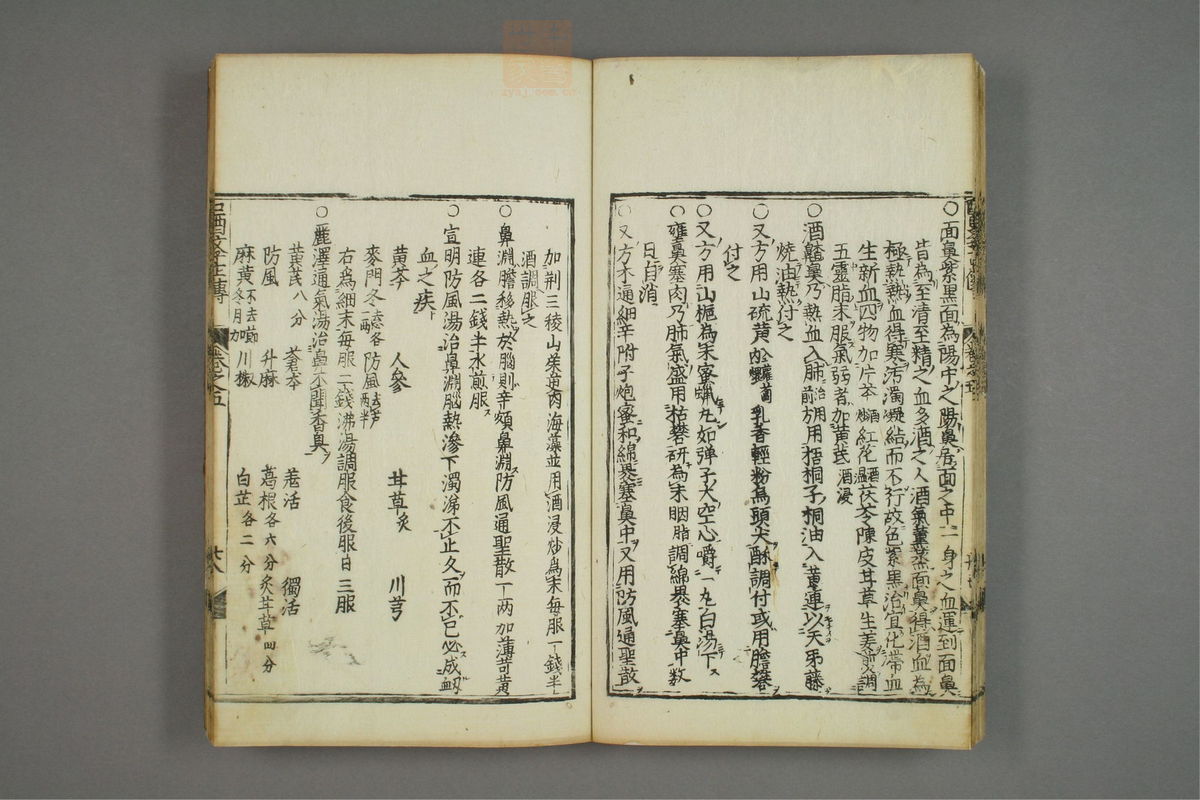 ○面鼻紫黑面為陽中之陽鼻居面之中一身之血運到面鼻
皆為至清至精之血多酒之人酒氣薰蒸面鼻得酒血為
極熱熱血得寒汚濁凝結而不行故色紫黑治宜化滯血
生新血四物加片芩酒炒紅花酒溫茯苓陳皮甘草生姜煎調
五靈脂末服氣弱者加黃芪酒浸
○酒齄鼻乃熱血入肺治用前方用梧桐子桐油入黃連以天吊藤
燒油熱付之
○又方用山硫黃乳香輕粉為頭尖酥調付或用膽礬
付之
○又方用山梔為末蜜蠟丸如弾子大空心嚼一丸白湯下
○雍鼻塞肉乃肺氣盛用枯礬研為末胭脂調綿裹塞鼻中数
日自消
○又方木通細辛附子炮蜜和綿裹塞鼻中又用防風通聖散
加荆三稜山茱萸肉海藻並用酒浸炒為末每服一錢半
酒調服之
○鼻淵膽移熱於腦則辛頞鼻淵防風通聖散一両加薄苛黃
連各二錢半水煎服
○宣明防風湯治鼻淵腦熱滲下濁涕不止久而不已必成衂
血之疾
黃芩 人參 甘草炙 川芎
麥門冬去心各一両 防風去芦両半
右為細末每服二錢沸湯調服食後服日三服
○麗澤通氣湯治鼻不聞香臭
黃芪八分 蒼朮 羗活 獨活
防風 升麻 葛根各六分 炙甘草四分
麻黃不去節冬月加 川椒 白芷各二分
卷之五
廿八